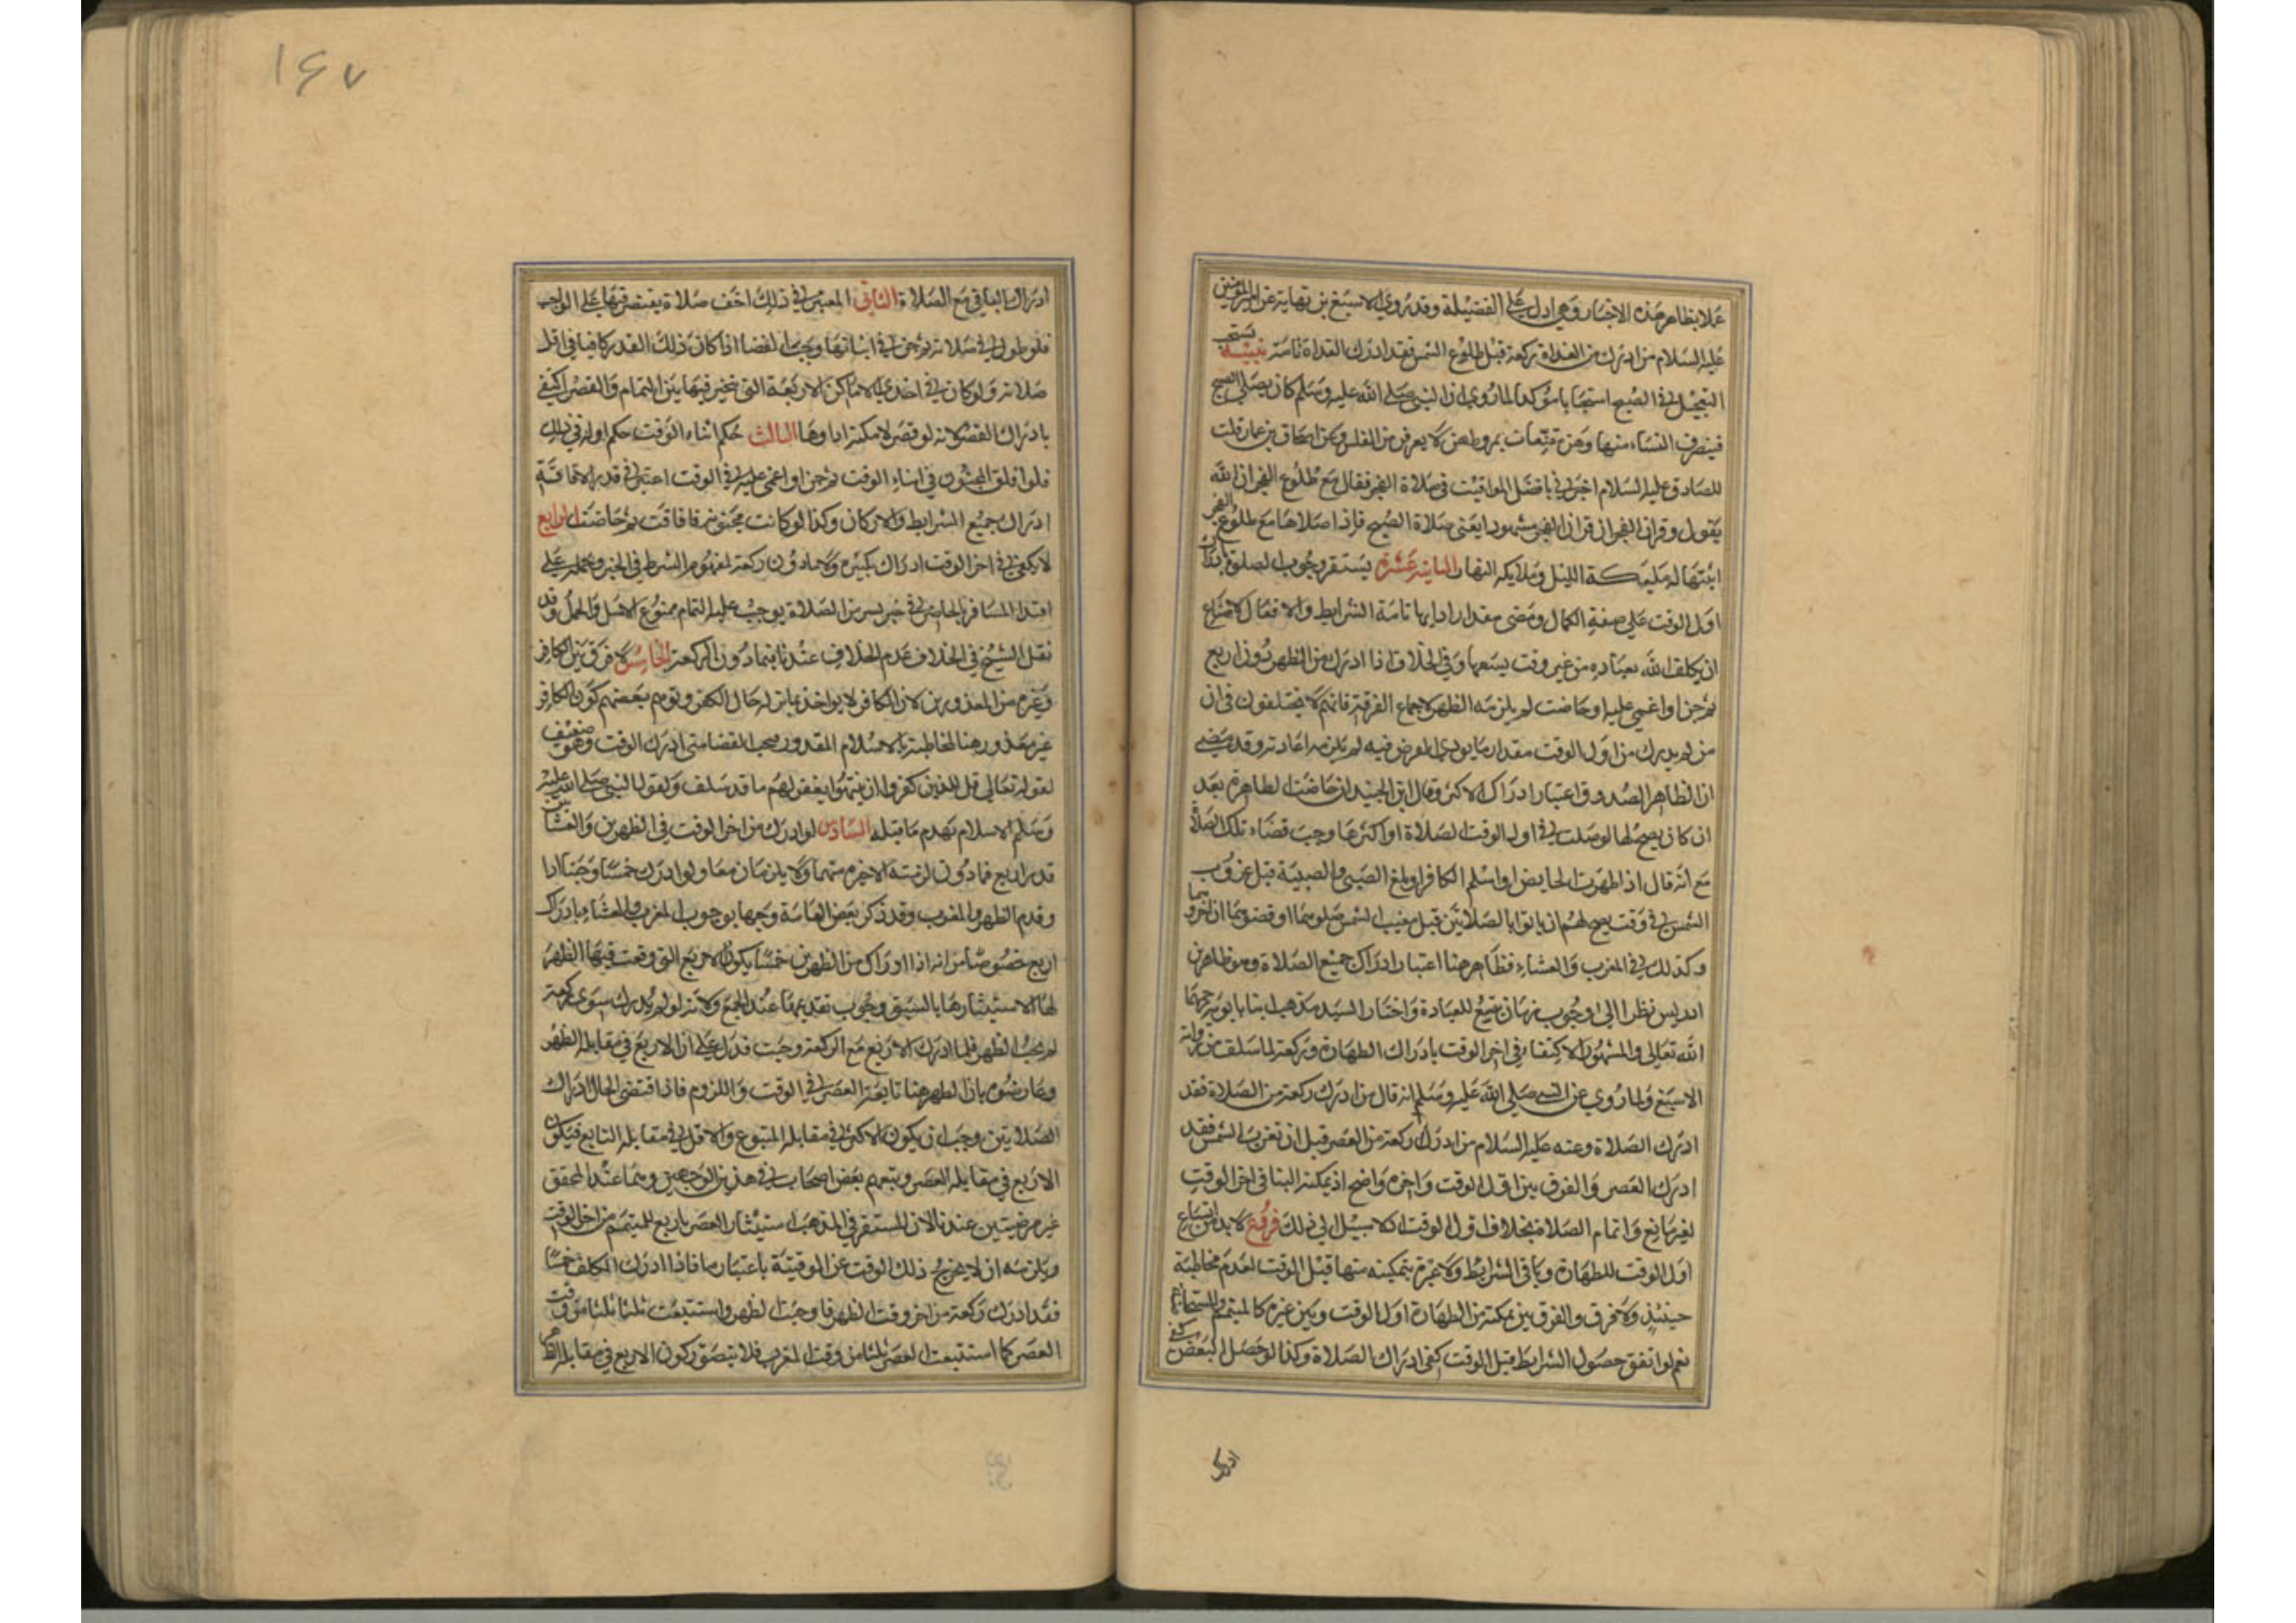 عملا بظاهر هذه الاخبار وهي ادل على الفضيلة وقد روى الاصبغ بن نباتة عن امير المؤمنين
عليه السلام من ادرك من الغداة ركعة قبل طلوع الشمس فقد ادرك الغداة تامة تنبيه يستحب
التعجيل في الصبح استحبابا مؤكدا لما روي ان النبي صلى الله عليه وسلم كان يصلي الصبح
فينصرف النساء منها وهن متلفعات بمروطهن لا يعرفن من الغلس وعن اسحاق بن عمار قلت
للصادق عليه السلام اخبرني بافضل المواقيت في صلاة الفجر فقال مع طلوع الفجر ان الله
يقول وقران الفجر ان قران الفجر كان مشهودا يعني صلاة الصبح فاذا صلاها مع طلوع الفجر
اثبتها له مليكة الليل وملايكة النهار الثانية عشرة يستقر وجوب الصلوة
اول الوقت على صفة الكمال ومضى مقدار ادايها تامة الشرايط والافعال لامتناع
ان يكلف الله بعباده من غير وقت يسعها وفي الخلاف اذا ادرك من الظهر دون اربع
ثم جن او اغمي عليه او حاضت لم يلزمه الظهر لاجماع الفرقة فانهم لا يختلفون في ان
من لم يدرك من اول الوقت مقدار ما يودي الفرض فيه لم يلزمه اعادته وقد مضى
ان الظاهر الصدوق اعتبار ادراك الاكثر وقال ابن الجنيد ان حاضت الطاهرة بعد
ان كان يصح لها لو صلت في اول الوقت الصلاة او اكثرها وجب قضاء تلك الصلاة
مع انه قال اذا طهرت الحايض او اسلم الكافر او بلغ الصبي والصبية قبل غروب
الشمس في وقت يصح لهم ان ياتوا بالصلاتين قبل مغيب الشمس صلوهما او قضوهما ان اخروهما
وكذلك في المغرب والعشاء فظاهر هنا اعتبار ادراك جميع الصلاة وهو ظاهر بن
ادريس نظرا الى وجوب زمان يتسع للعبادة واختار السيد مذهب ابنا بابويه رحمهما
الله تعالى والمشهور الاكتفاء في اخر الوقت بادراك الطهارة وركعة لما سلف من رواية
الاصبغ ولما روي عن النبي صلى الله عليه وسلم انه قال من ادرك ركعة من الصلاة فقد
ادرك الصلاة وعنه عليه السلام من ادرك ركعة من العصر قبل ان تغرب الشمس فقد
ادرك العصر والفرق بين اول الوقت واخره واضح اذ يمكنه البنا في اخر الوقت
لغير مانع واتمام الصلاة بخلاف اول الوقت اذ لا سبيل الى ذلك فروع لا بد من اتساع
اول الوقت للطهارة وباقي الشرايط ولا عبرة بتمكينه منها قبل الوقت لعدم مخاطبته
حينئذ ولا فرق والفرق بين تمكنه من الطهارة اول الوقت وبين غيره كالمتيمم والمستحاضة
نعم لو اتفق حصول الشرايط قبل الوقت كفى ادراك الصلاة وكذا لو حصل البعض كفى
ادراك
١٤٧
ادراك الباقي مع الصلاة الثاني المعتبر في ذلك اخف صلاة يقتصر فيها على الواجب
فلو طول في صلاته ثم جن في اثنائها وجب القضا اذا كان ذلك القدر كافيا في اقل
صلاته ولو كان في احدى الاماكن الاربعة التي تخير فيها بين التمام والقصر اكتفى
بادراك القصر لانه لو قصر لامكنه اداوها الثالث حكم اثناء الوقت حكم اوله في ذلك
فلو افاق المجنون في اثناء الوقت ثم جن او اغمي عليه في الوقت اعتبر في قدر الافاقة
ادراك جميع الشرايط والاركان وكذا لو كانت مجنونة فافاقت ثم حاضت الرابع
لا يكفي في اخر الوقت ادراك تكبيرة ولا ما دون ركعة لمفهوم الشرط في الخبر وحمله على
اقتدا المسافر بالحاضر في خبر يسير من الصلاة يوجب عليه التمام ممنوع الاصل والحمل وقد
نقل الشيخ في الخلاف عدم الخلاف عندنا فيما دون الركعة الخامس لا فرق بين الكافر
وغيره من المعذورين لان الكافر لا يواخذ بما تركه حال الكفر وتوهم بعضهم كون الكافر
غير معذور هنا لمخاطبته بالاسلام المقدور فيجب القضا متى ادرك الوقت وهو ضعيف
لقوله تعالى قل للذين كفروا ان ينتهوا يغفر لهم ما قد سلف ولقول النبي صلى الله عليه
وسلم الاسلام يهدم ما قبله السادس لو ادرك من اخر الوقت في الظهرين والعشائين
قدر اربع فما دون لزمته الاخيرة منهما ولا يلزمان معا ولو ادرك خمسا وجبتا ادا
وقدم الظهر والمغرب وقد ذكر بعض العامة وجها بوجوب المغرب والعشاء بادراك
اربع خصوصا من انه اذا ادراك من الظهرين خمسا يكون الاربع التي وقعت فيها الظهر
لها لاستيثارها بالسبق وجوب تقديمها عند الجمع ولانه لو لم يدرك سوى ركعة
لم يجب الظهر فلما ادرك الاربع مع الركعة وجبت فدل على ان الاربع في مقابلة الظهر
وعارضوه بان الظهر هنا تابعة العصر في الوقت واللزوم فاذا اقتضى الحال ادراك
الصلاتين وجب ان يكون الاكثر في مقابلة المتبوع والاقل في مقابلة التابع فيكون
الاربع في مقابلة العصر وتبعهم بعض اصحاب في هذين الوجهين وهما عند المحقق
غير مرضيتين عندنا لان المستقر في المذهب استيثار العصر باربع للمتيمم من اخر الوقت
ويلزمه ان لا يخرج ذلك الوقت عن الموقتية باعتبار ما فاذا ادرك المكلف خمسا
فقد ادرك ركعة من اخر وقت الظهر فاوجبت الظهر واستتبعت ثلثا ثلثا من وقت
العصر كما استتبعت العصر ثلثا من وقت المغرب فلا يتصور كون الاربع في مقابلة الظهر